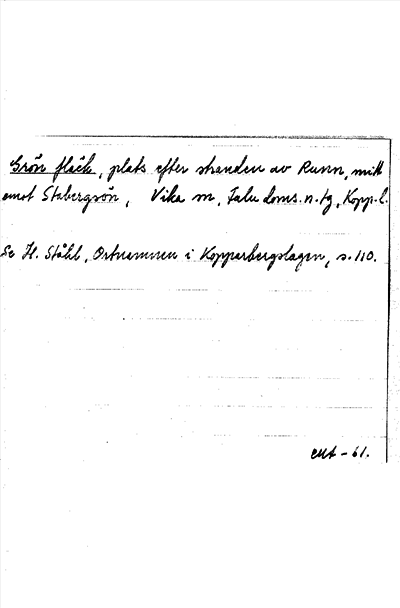 Grön fläck, plats efter stranden av Runn, mitt
emot Stabergsön, Vika sn, Falu doms. n. tg, Kopp. l.
Se H. Ståhl, Ortnamnen i Kopparbergslagen, s. 110.
- 61.